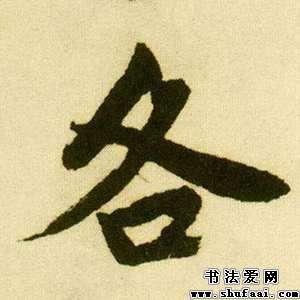 各
书法爱网
www.shufaai.com